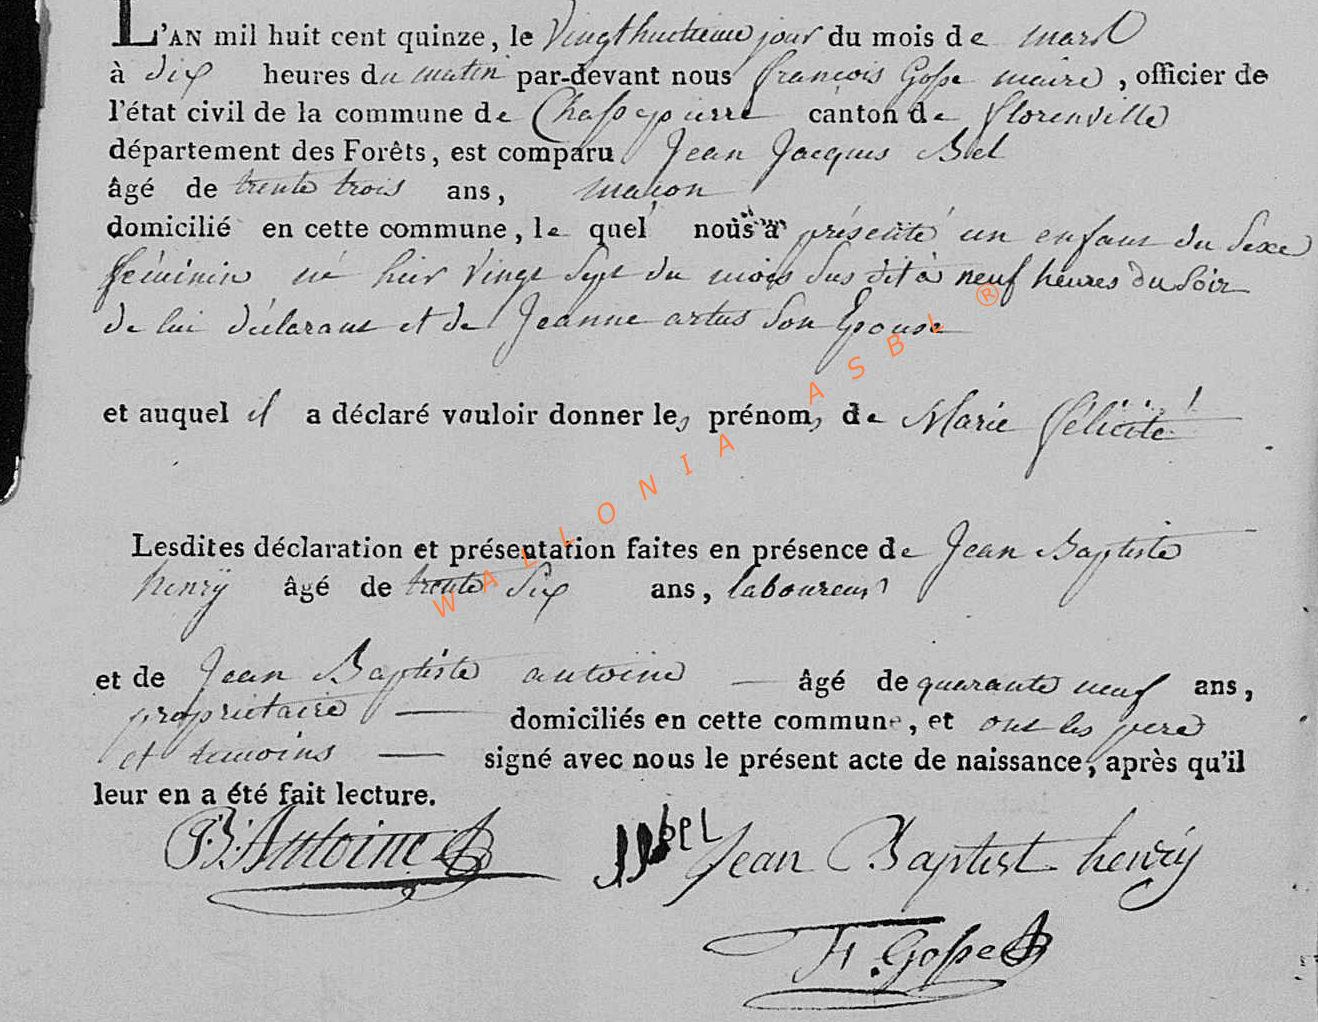 L'AN mil huit cent quinze, le Vingthuitieme jour du mois de mars
à dix heures du matin par-devant nous françois Gosse maire, officier de
l'état civil de la commune de Chassepierre canton de florenville
département des Forêts, est comparu Jean Jacques Bel
âgé de trente trois ans, maçon
domicilié en cette commune, le quel nous à présenté un enfant du Sexe
féminin né hier Vingt Sept du mois Sus dit à neuf heures Du Soir
de lui déclarant et de Jeanne artus Son Epouse
et auquel il a déclaré vouloir donner les prénoms de Marie félicité
Lesdites déclaration et présentation faites en présence de Jean Baptiste
henrÿ âgé de trente Six ans, laboureur
et de Jean Baptiste antoine — âgé de quarante neuf ans,
propriétaire — domiciliés en cette commune, et ont les pere
et temoins — signé avec nous le présent acte de naissance, après qu'il
leur en a été fait lecture.
JB. Antoine JJbel Jean Baptist henrÿ
Fr. Gosse
WALLONIA ASBL ®